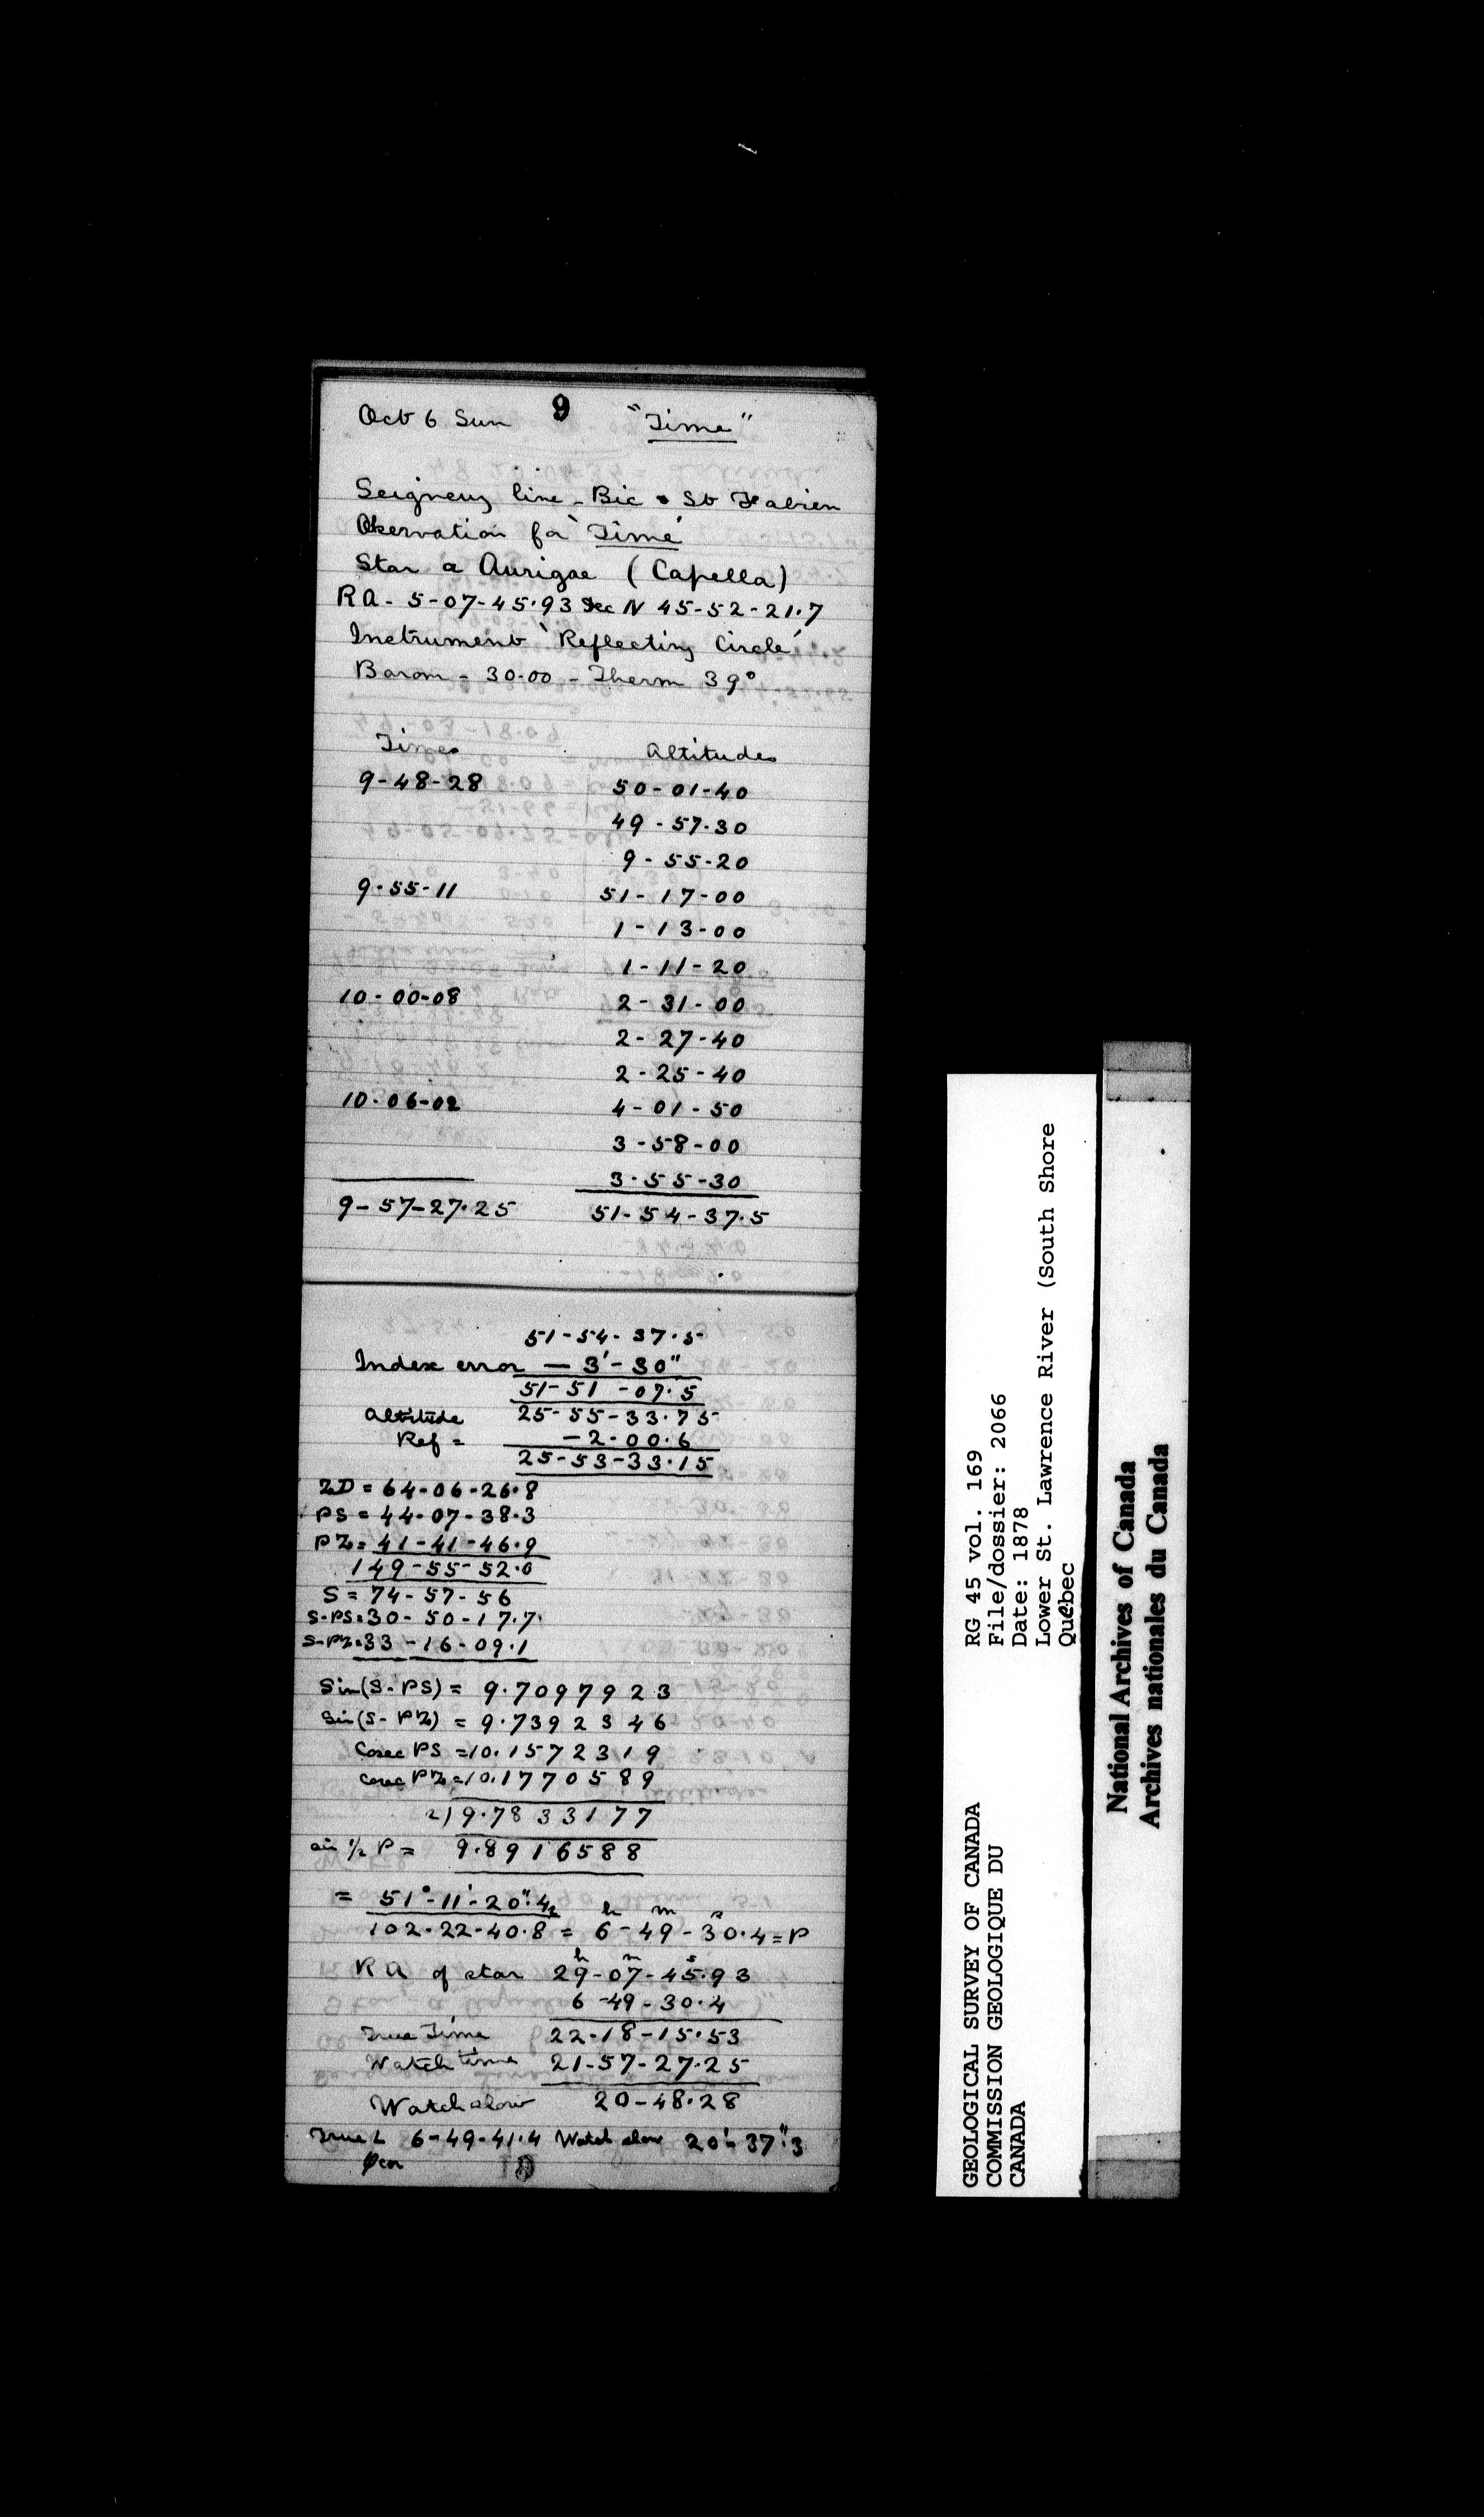 Oct 6 Sun 9 "Time"
Seigneury line - Bic & St Fabien
Obervation for 'Time'
Star α Aurigae (Capella)
RA - 5-07-45.93 Dec N 45-52-21.7
Instrument 'Reflecting Circle'
Barom - 30.00 - Therm 39°
Times Altitudes
9-48-28 50-01-40
49-57-30
9-55-20
9-55-11 51-17-00
1-13-00
1-11-20
10-00-08 2-31-00
2-27-40
2-25-40
10-06-02 4-01-50
3-58-00
3-55-30
9-57-27.25 51-54-37.5
51-54-37.5
Index error - 3'-30"
51-51-07.5
Altitude 25-55-33.75
Ref = -2-00.6
25-53-33.15
ZD = 64-06-26.8
PS = 44-07-38.3
PZ = 41-41-46.9
149-55-52.0
S = 74-57-56
S-PS = 30-50-17.7
S-PZ = 33-16-09.1
Sin(S-PS) = 9.7097923
Sin(S-PZ) = 9.7392346
Cosec PS = 10.1572319
Cosec PZ = 10.1770589
2) 9.7833177
sin ½ P = 9.8916588
= 51°-11'-20".4
102-22-40.8 = 6h-49m-30s.4 = P
RA of star 29h-07m-45s.93
6-49-30.4
True Time 22-18-15.53
Watch time 21-57-27.25
Watch slow 20-48.28
True L 6-49-41.4 Watch slow 20'-37".3
GEOLOGICAL SURVEY OF CANADA
COMMISSION GEOLOGIQUE DU
CANADA
RG 45 vol. 169
File/dossier: 2066
Date: 1878
Lower St. Lawrence River (South Shore
Québec
National Archives of Canada
Archives nationales du Canada